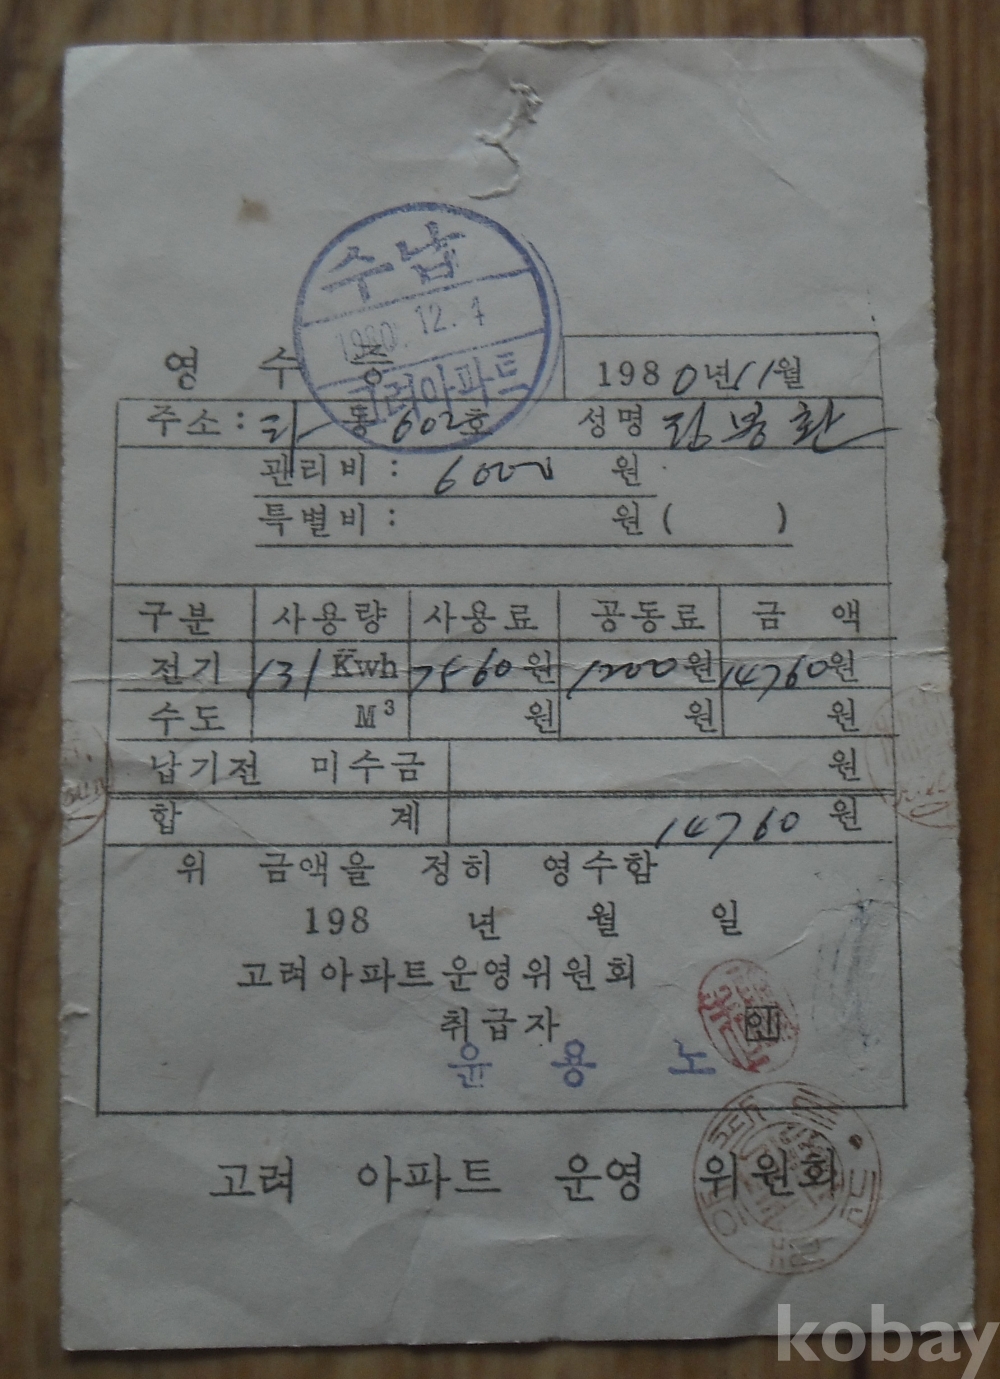 수납
1980. 12. 4
고려아파트
영 수 증
1980년 11월
주소: 라 동 602호 성명
관리비: 6000 원
특별비: 원 ( )
구분 사용량 사용료 공동료 금 액
전기 131 Kwh 7560원 1200원 14760원
수도 M³ 원 원 원
납기전 미수금 원
합 계 14760 원
위 금액을 정히 영수함
198 년 월 일
고려아파트운영위원회
취급자 인
윤 용 노
고려 아파트 운영 위원회
kobay